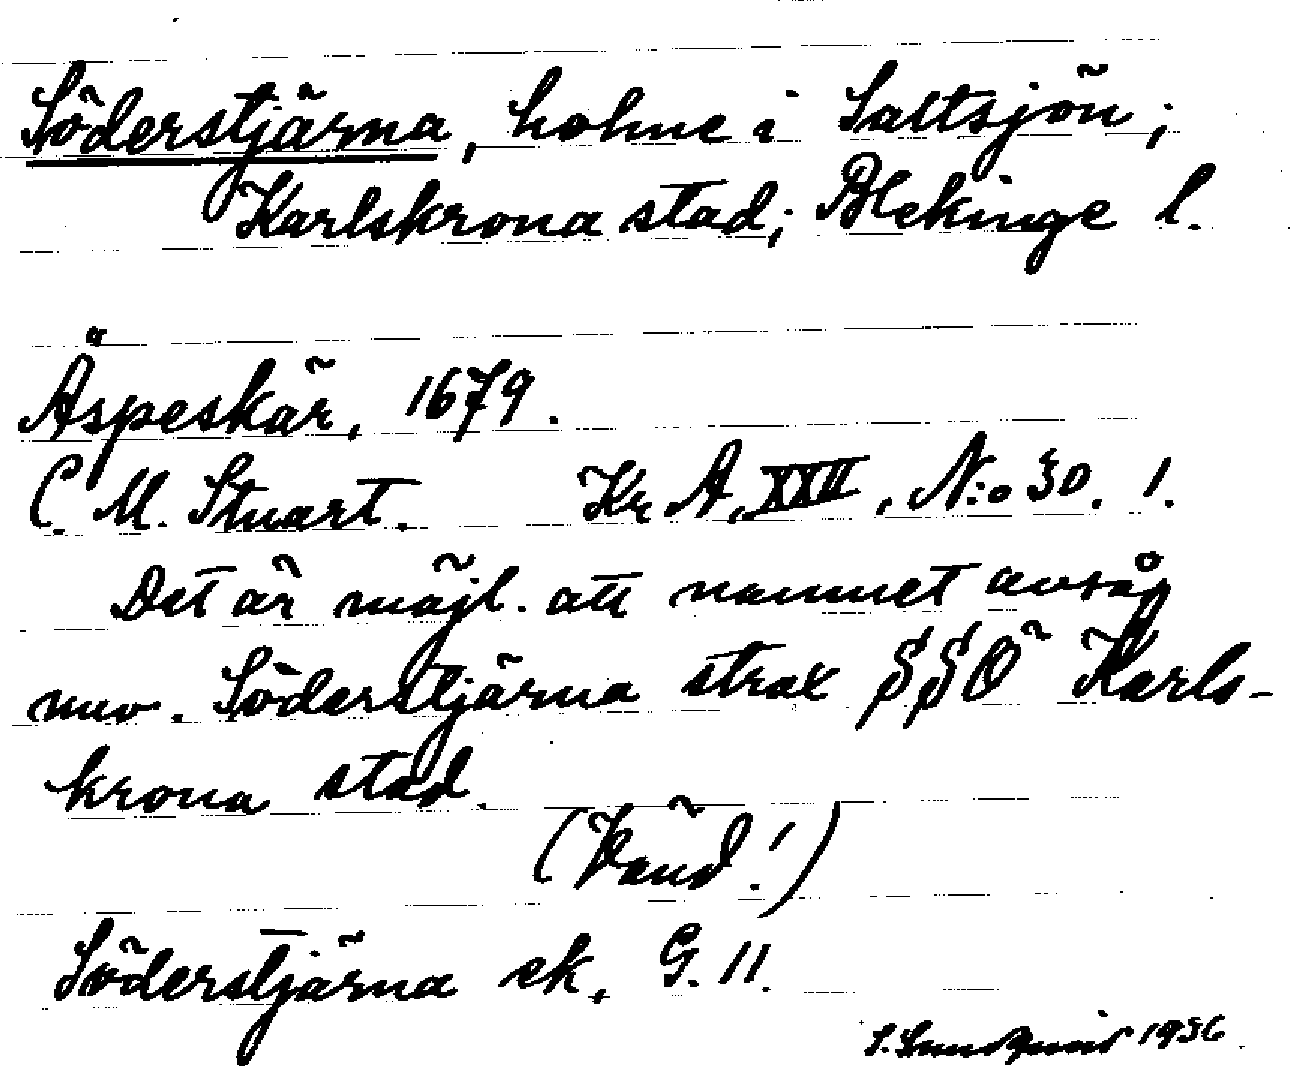 Söderstjärna, holme i Saltsjön;
Karlskrona stad; Blekinge l.
Äspeskär, 1679.
C. M. Stuart. Kr A, XXII, N:o 30. 1.
Det är möjl. att namnet avsåg
nuv. Söderstjärna strax SSO Karls-
krona stad.
(Vänd!)
Söderstjärna ek. G. 11.
1936